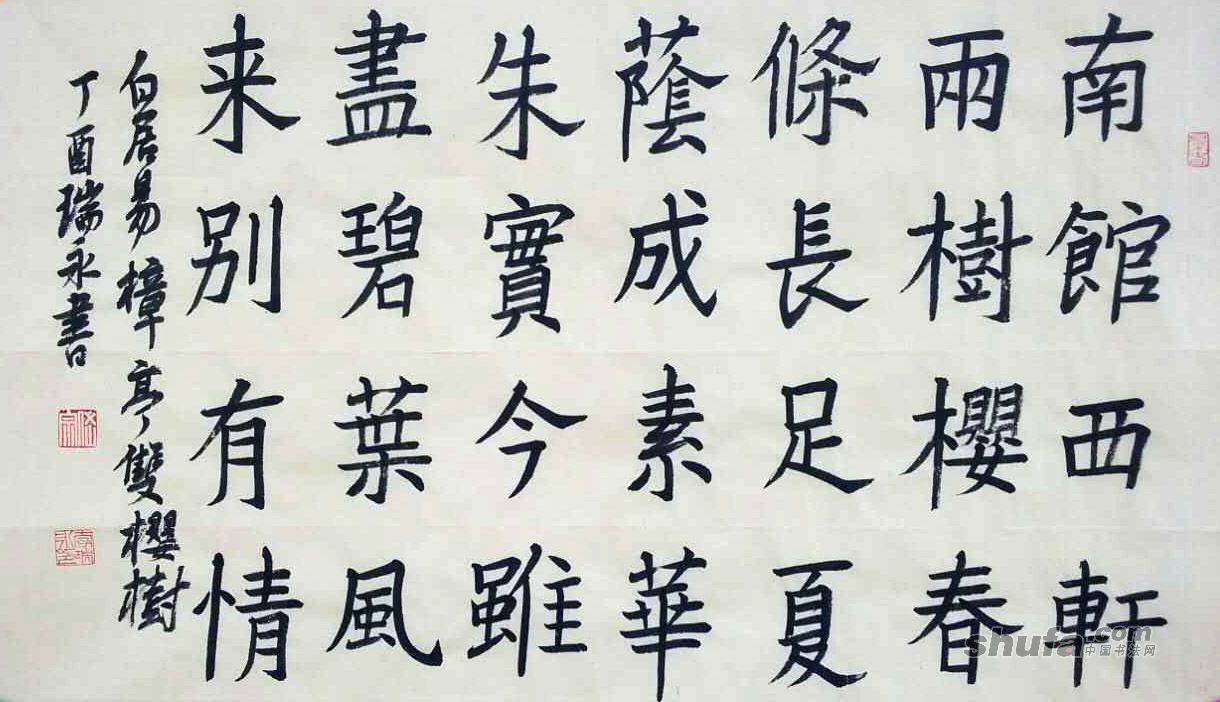 南館西軒
兩樹櫻春
條長足夏
蔭成素華
朱實今雖
盡碧葉風
来别有情
白居易樟亭雙櫻樹
丁酉瑞永書
shufa.com
中国书法网